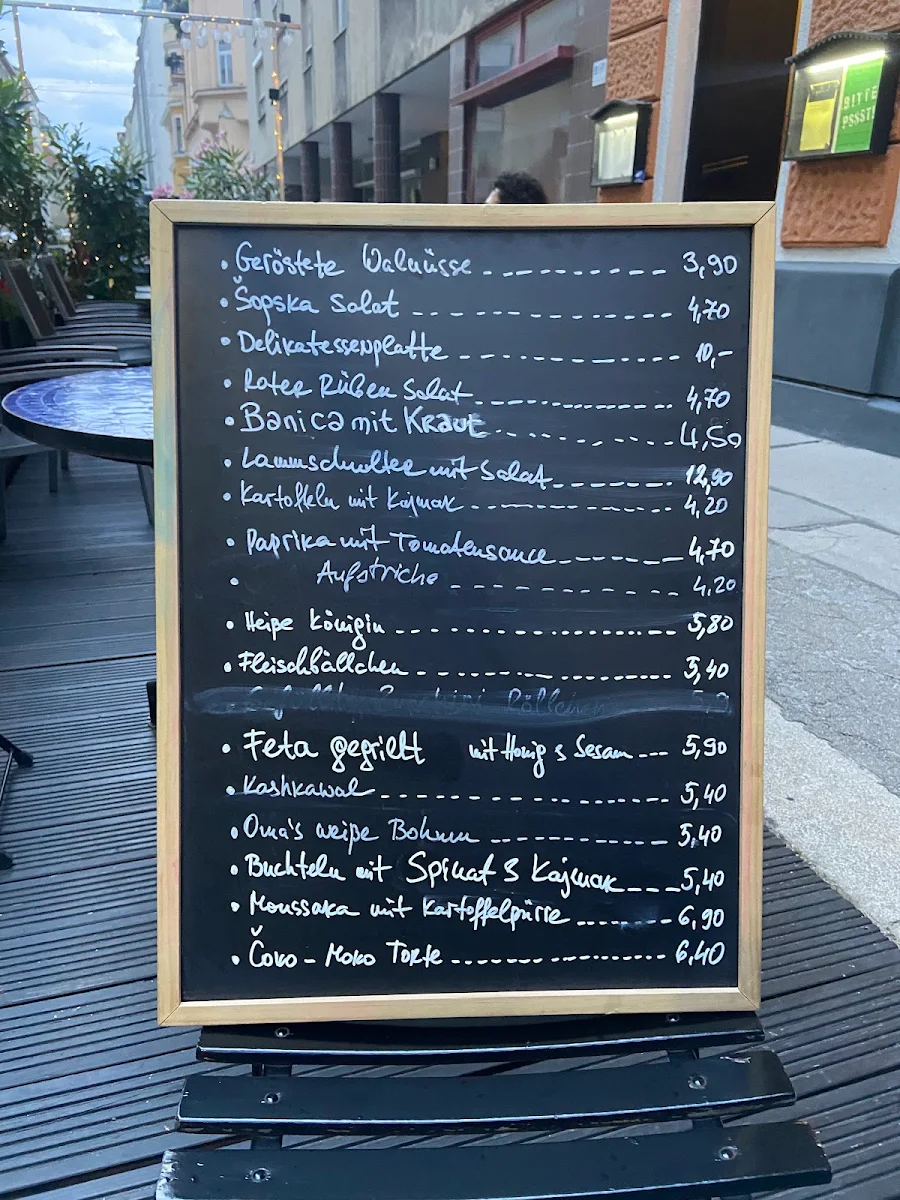 BITTE
PSSST!
• Geröstete Walnüsse 3,90
• Šopska Salat 4,70
• Delikatessenplatte 10,-
• Roter Rüben Salat 4,70
• Banica mit Kraut 4,50
• Lammschulter mit Salat 12,90
• Kartoffeln mit Kajmak 4,20
• Paprika mit Tomatensauce 4,70
• Aufstriche 4,20
• Heiße Königin 5,80
• Fleischbällchen 5,40
• Feta gegrillt mit Honig & Sesam 5,90
• Kashkawal 5,40
• Oma's weiße Bohnen 5,40
• Buchteln mit Spinat & Kajmak 5,40
• Moussaka mit Kartoffelpürre 6,90
• Čoko-Moko Torte 6,40